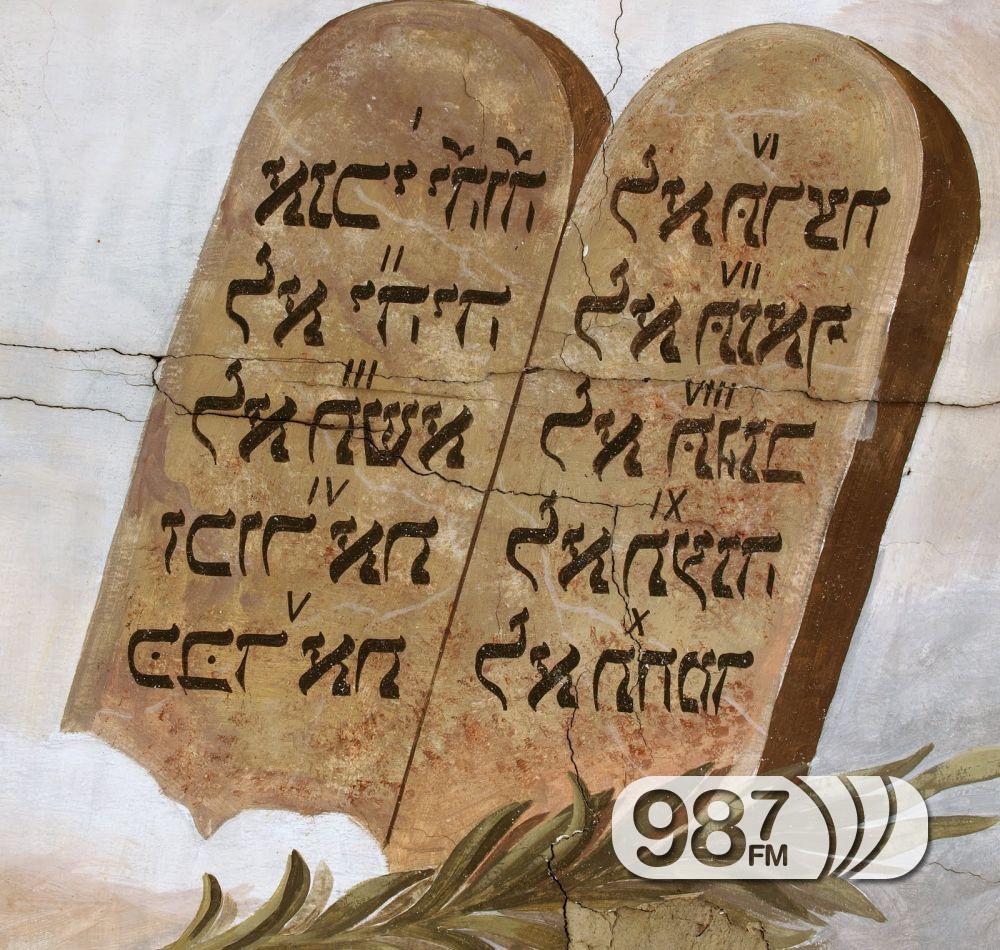 I
אנכי יהוה
II
לא יהיה
III
לא תשא
IV
זכור את
V
כבד את
VI
לא תרצח
VII
לא תנאף
VIII
לא תגנב
IX
לא תענה
X
לא תחמד
98.7 FM